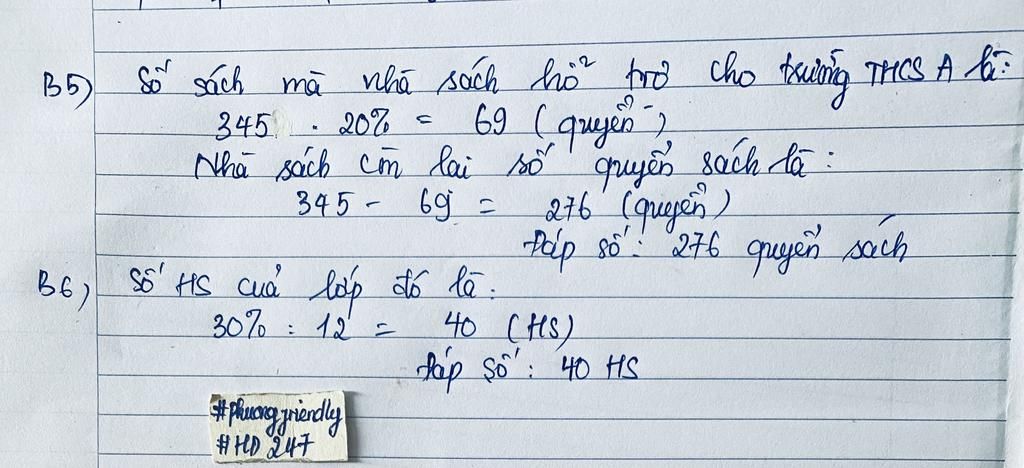 B5) Số sách mà nhà sách hỗ trợ cho trường THCS A là:
345 . 20% = 69 (quyển)
Nhà sách còn lại số quyển sách là:
345 - 69 = 276 (quyển)
Đáp số: 276 quyển sách
B6) Số HS của lớp đó là:
30% : 12 = 40 (HS)
Đáp số: 40 HS
#phuongfriendly
#HD 247